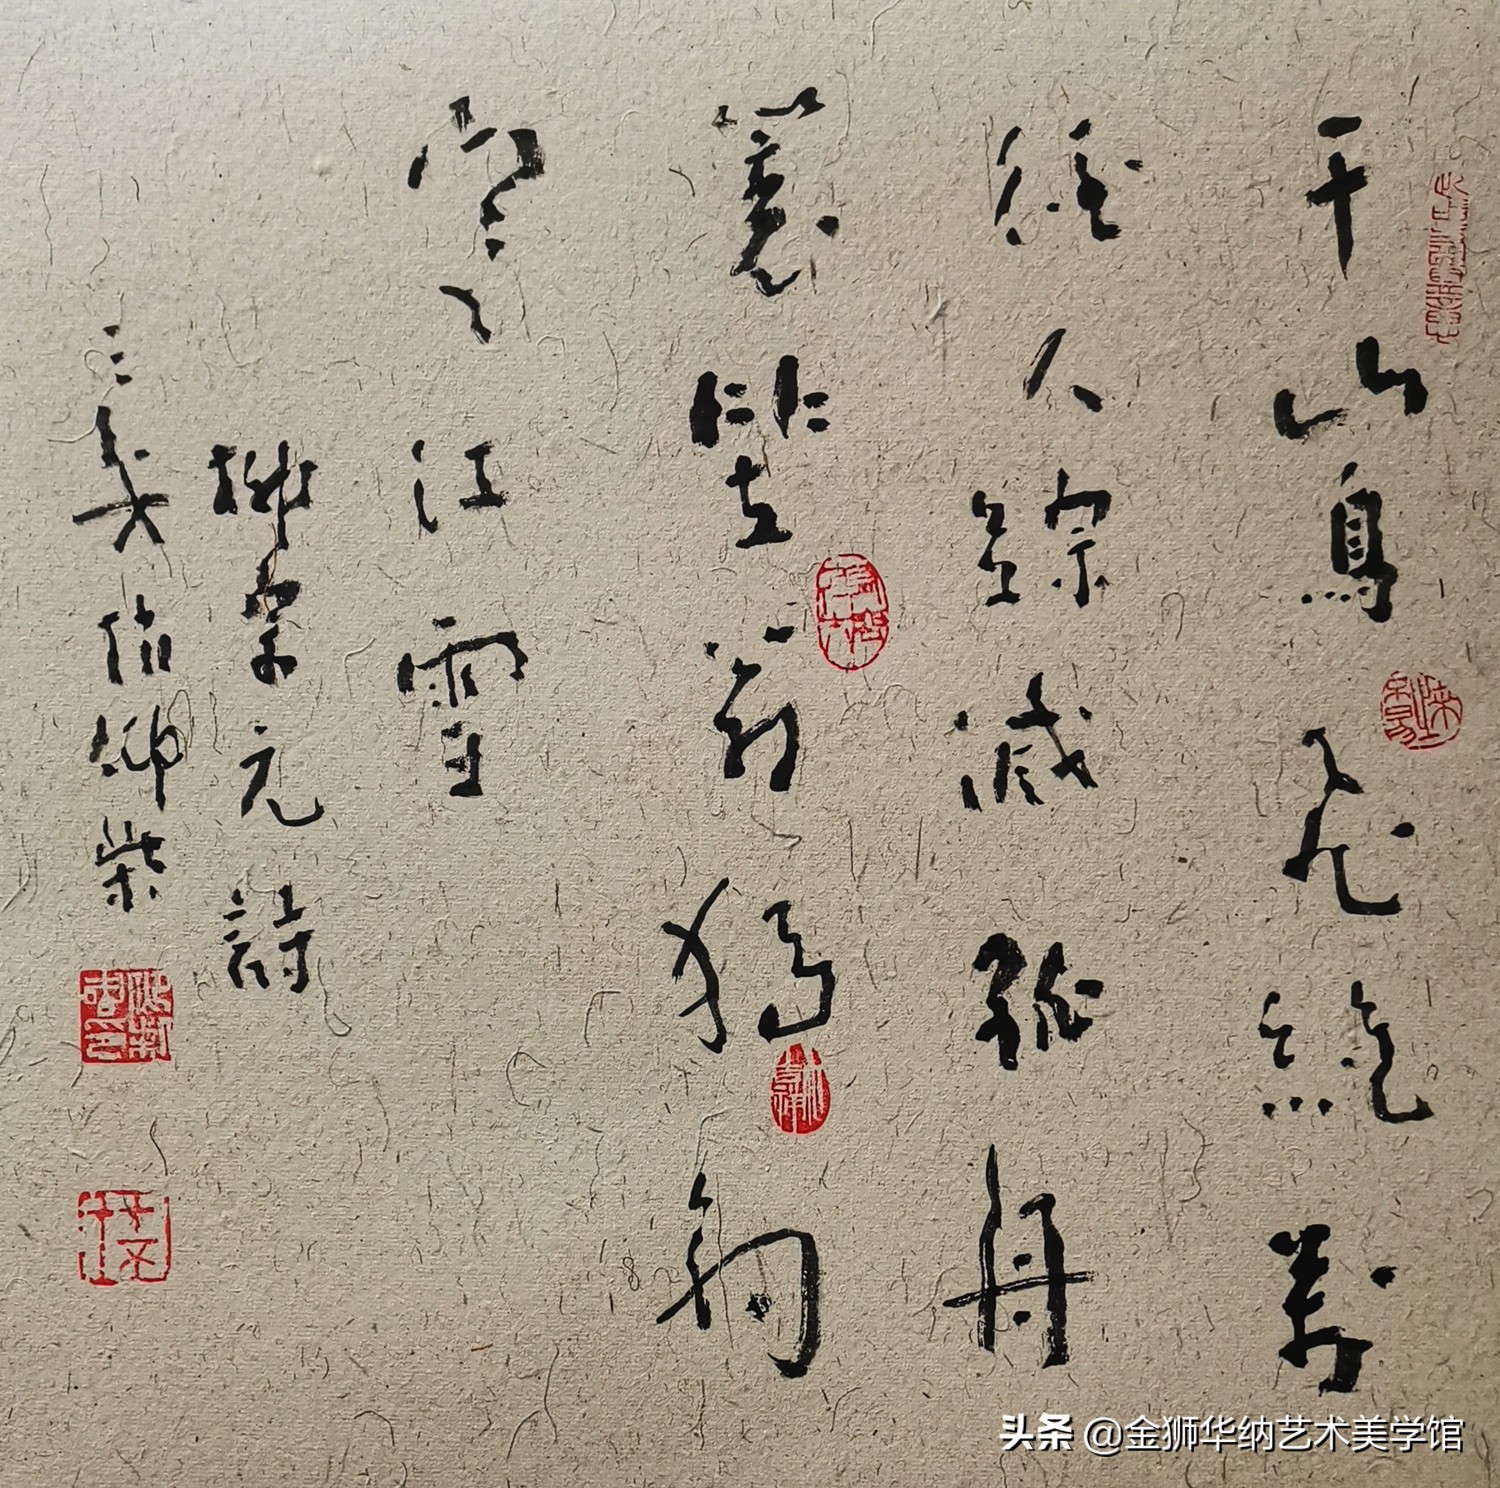 千山鳥飛絕萬
徑人踪滅孤舟
蓑笠翁獨釣
寒江雪
柳宗元詩
头条 @金狮华纳艺术美学馆